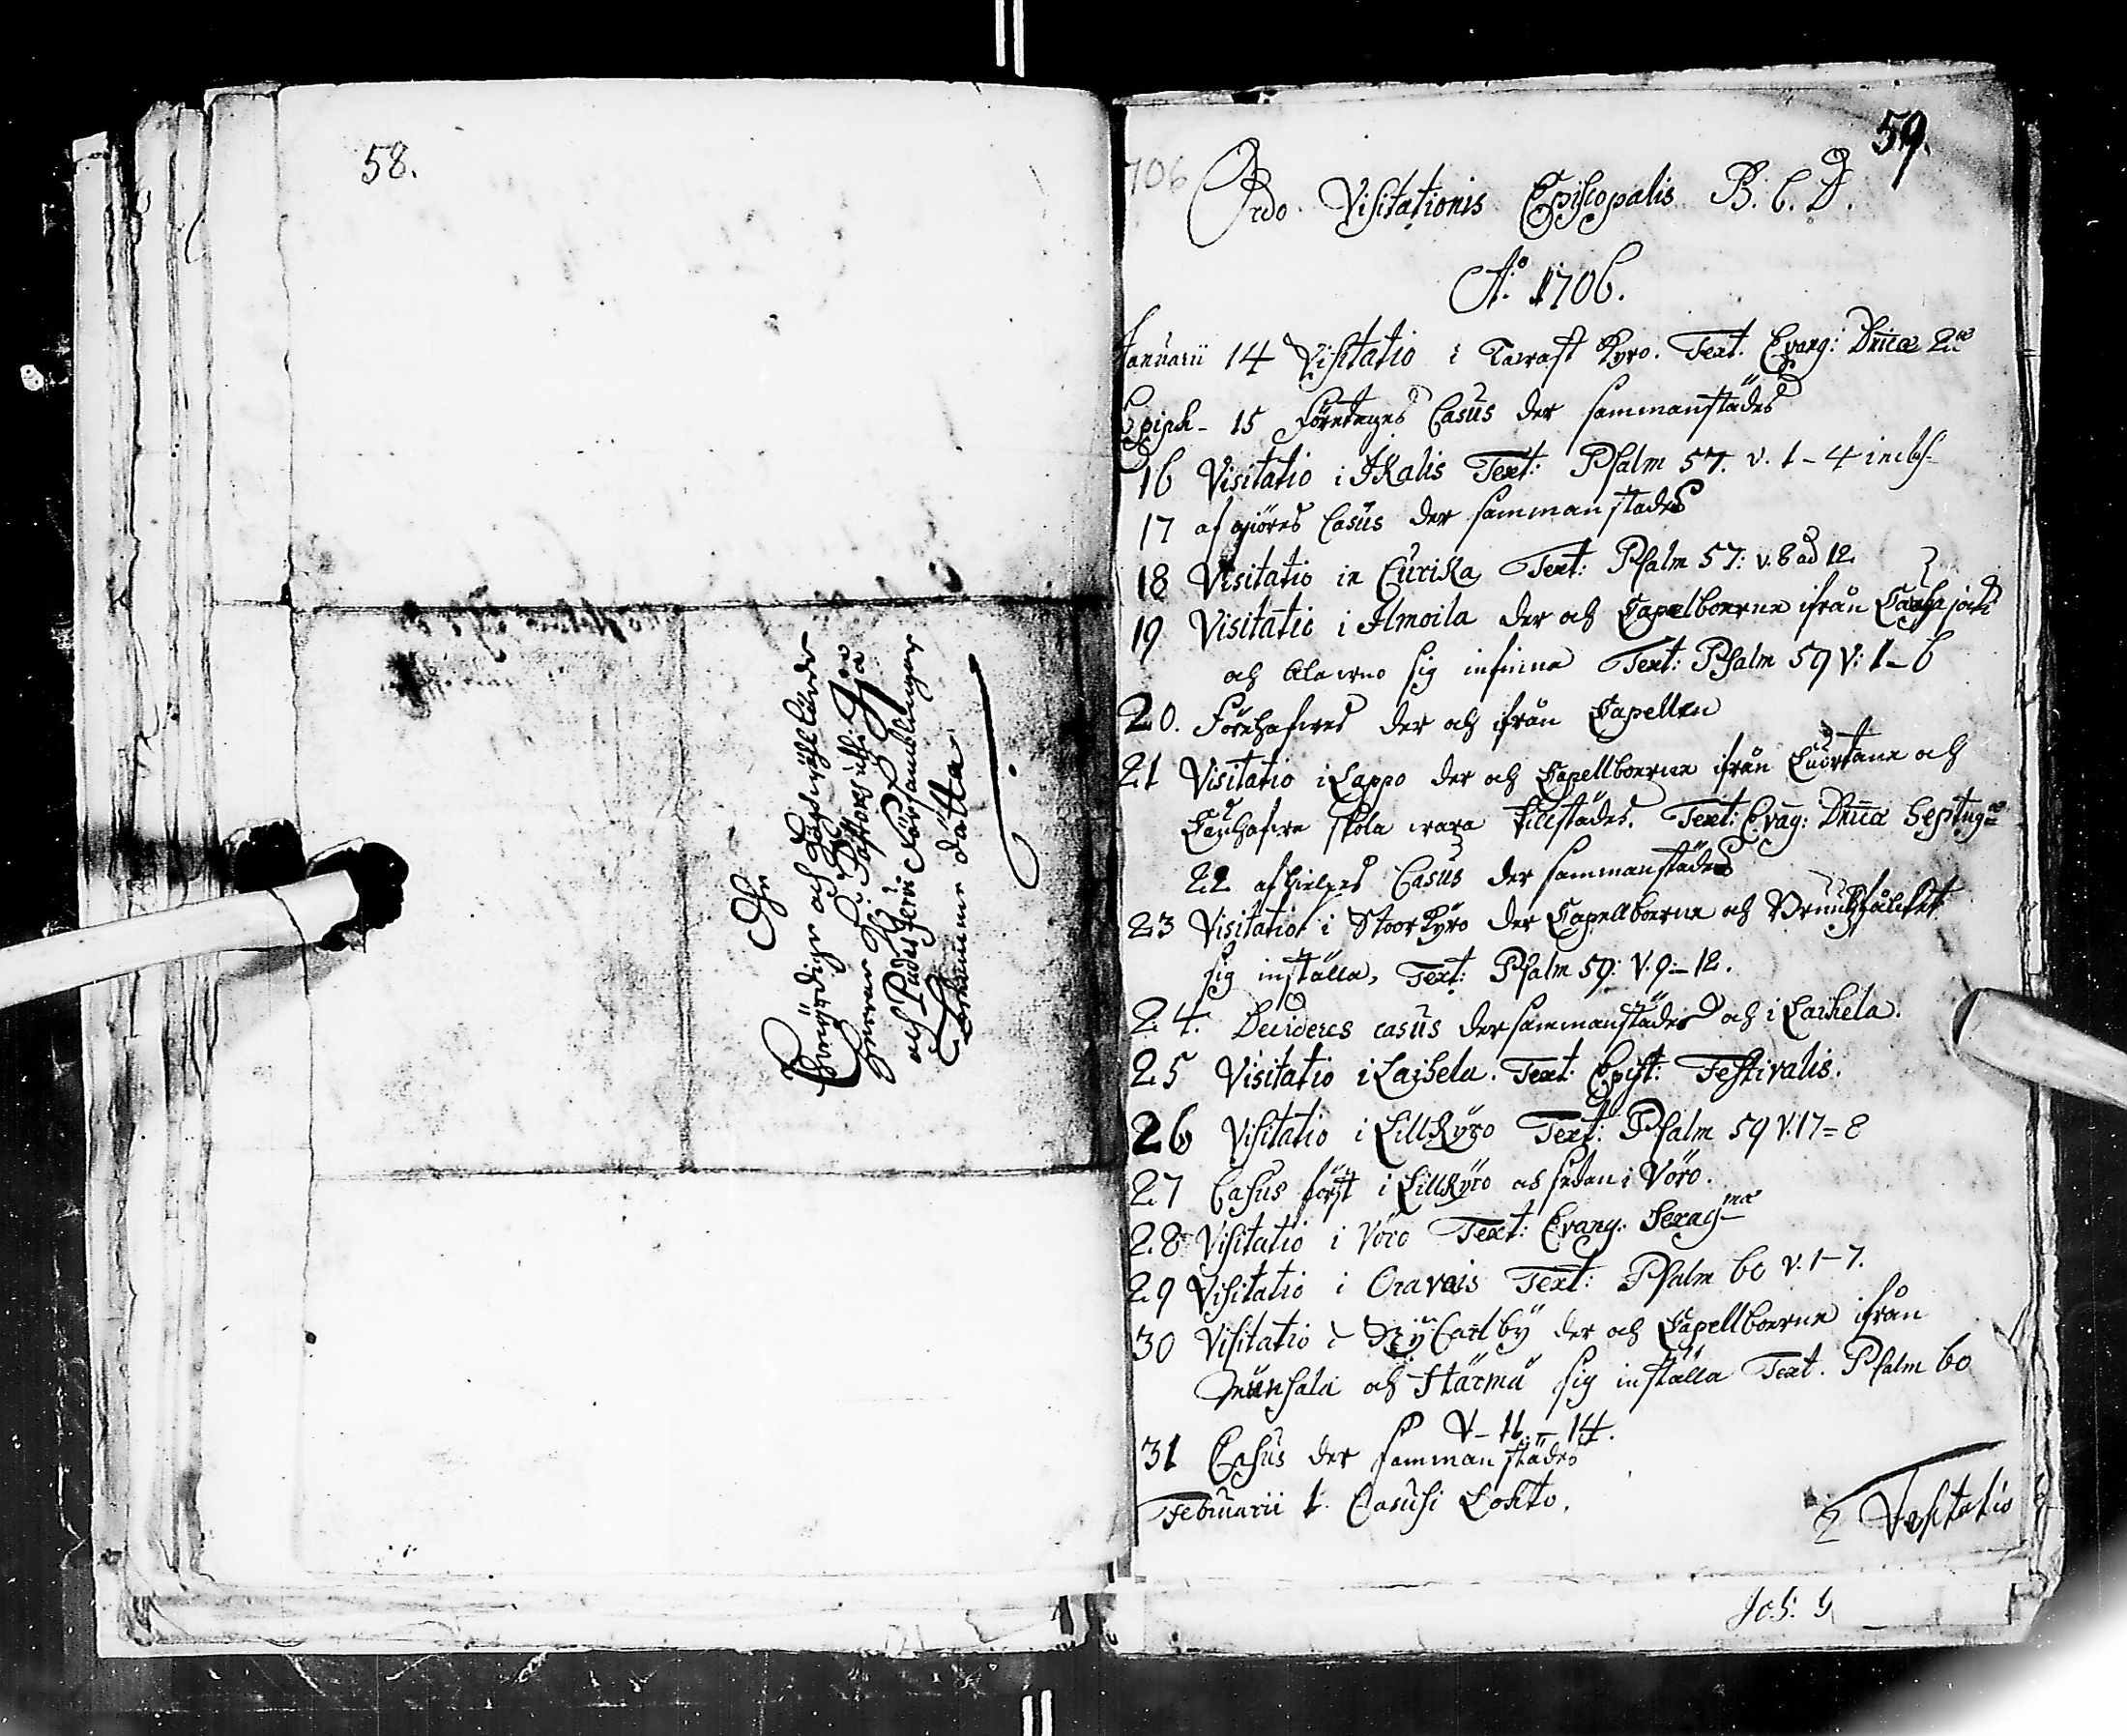 58.
Ehr
Ehrwürdige och Höghwählärde
Herrar Pastorsüthi Ijo
och Pudas Jerfi Församblingar
Tilkomme dätta
59.
706
Ordo Visitationis Episcopalis B. C. D.
Aº. 1706.
Januarii 14 Visitatio i Tavast Kyro. Text. Evang: Dnicæ 2æ
Epiph- 15 Företages Casus der sammanstädes
16 Visitatio i Ikalis Text: Psalm 57. v. 1-4 incls-
17 afgiöres Casus der sammanstädes
18 Visitatio in Curika Text: Psalm 57: v. 8 ad 12
19 Visitatio i Ilmoila der och Capelboerne ifrån
och Alawus sig infinna Text: Psalm 59 V: 1-6
20. Förehafwes der och ifrån Capellen
21 Visitatio i Lappo der och Capellboerne ifrån Cuortane och
Cauhafwa skola wara tillstädes. Text: Evag: Dnicæ Septugæ
22 afhielpes Casus der sammanstädes
23 Visitatio i StoorKyro der Capellboerne och Brunksfålcket
sig inställa, Text: Psalm 59: V. 9-12.
24. Decideres casus dersammanstädes och i Laihela.
25 Visitatio i Laihela. Text: Epist: Festivalis.
26 Visitatio i LillKyro Text: Psalm 59 V: 17=8
27 Casus först i LillKyro och sedan i Vörö.
28 Visitatio i Vöro Text: Evang: Sexagmæ
29 Visitatio i Oravais Text: Psalm 60 v. 1-7.
30 Visitatio i NyCarlby der och Capellboerne ifrån
Munsala och Härmä sig inställa Text. Psalm 60
V- 11.-14.
31 Casus der sammanstädes
Februarii 1. Casus i Lohto.
2 Visitatio
Joh: G